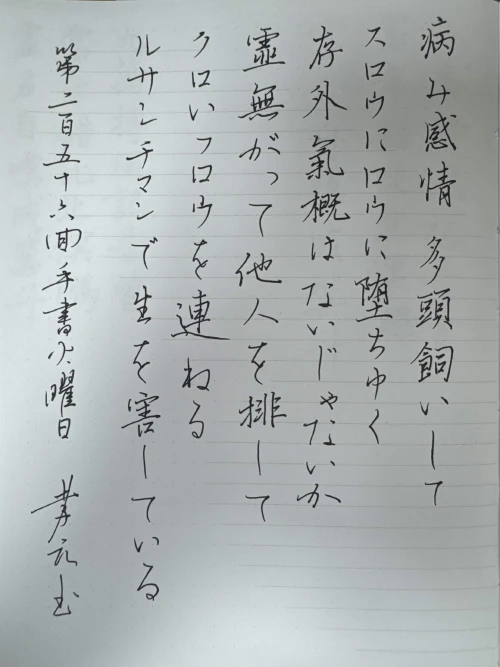 病み感情 多頭飼いして
スロウにロウに堕ちゆく
存外氣概はないじゃないか
虚無がって他人を排して
クロいフロウを連ねる
ルサンチマンで生を害している
第二百五十六回手書火曜日